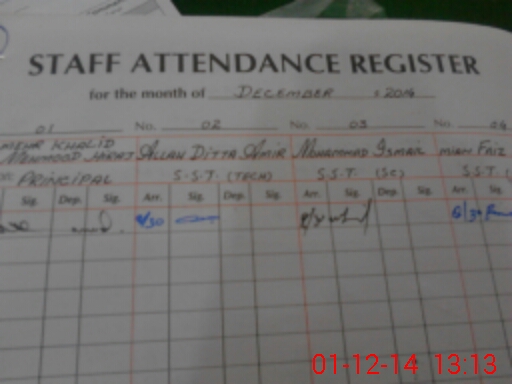 STAFF ATTENDANCE REGISTER
for the month of DECEMBER 2014
01 No. 02 No. 03 No. 04
KHALID
MEHMOOD ALLAH DITTA AMIR MUHAMMAD MIAN FAIZ
PRINCIPAL S.S.T. (TECH) S.S.T. (Sc) S.S.T.
Sig. Dep. Sig. Arr. Sig. Dep. Sig. Arr. Sig. Dep. Sig. Arr. Sig.
01-12-14 13:13